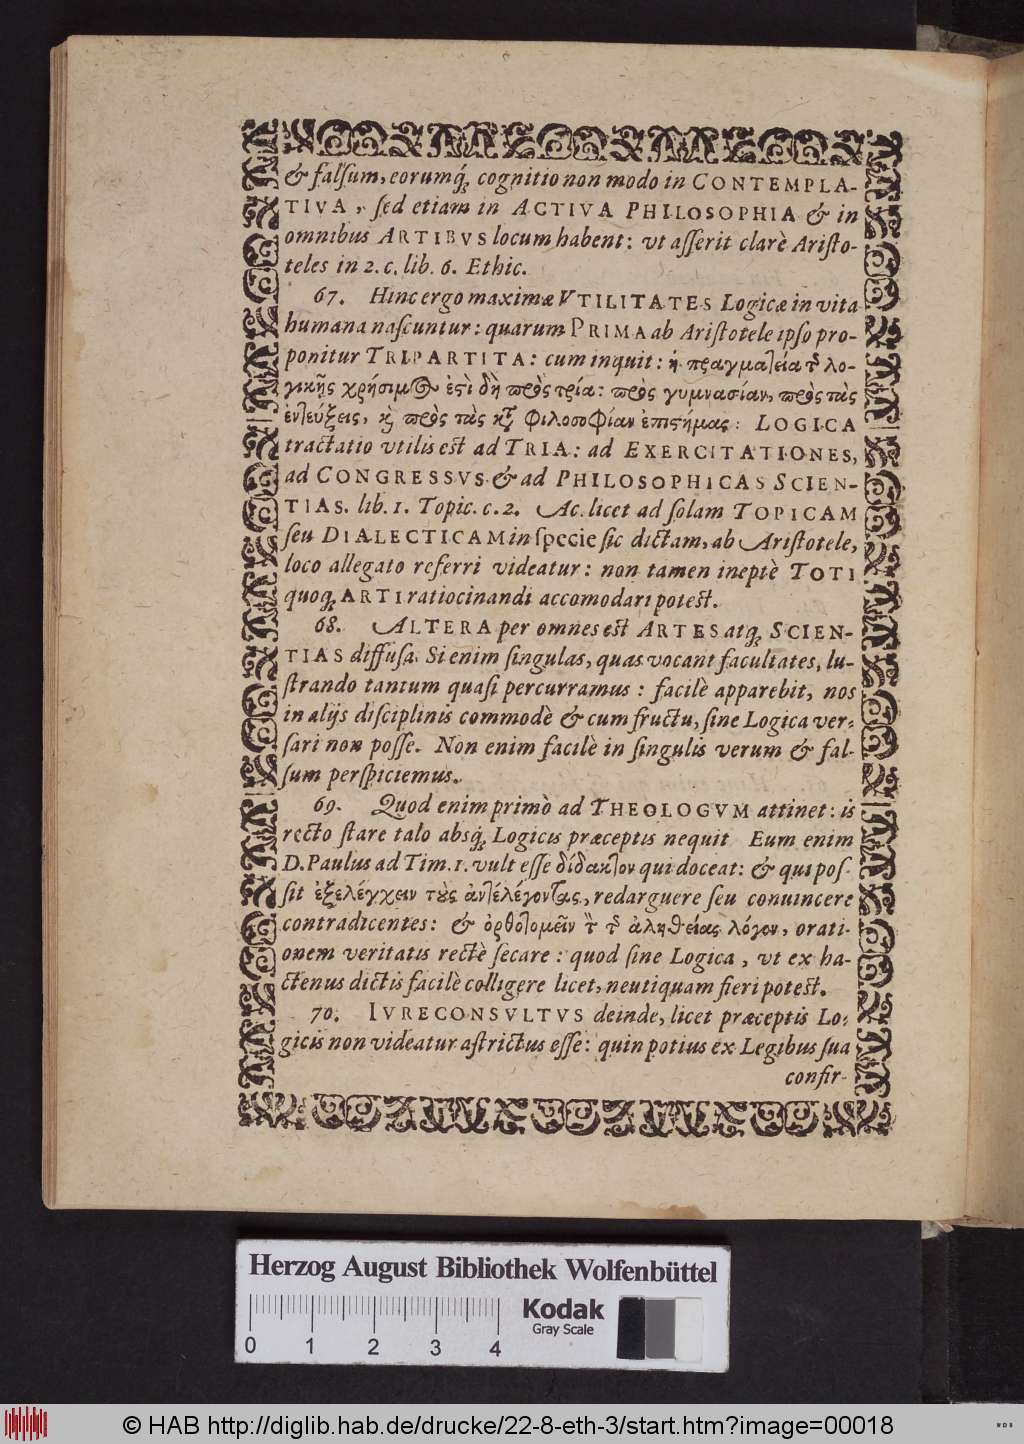 & falsum, eorumq́; cognitio non modo in CONTEMPLA-
TIVA, sed etiam in ACTIVA PHILOSOPHIA & in
omnibus ARTIBVS locum habent: vt asserit clarè Aristo-
teles in 2. c. lib. 6. Ethic.
67. Hinc ergo maximæ VTILITATES Logicæ in vita
humana nascuntur: quarum PRIMA ab Aristotele ipso pro-
ponitur TRIPARTITA: cum inquit: ἡ πραγματεία τ͂ λο-
γικῆς χρήσιμος ἐστὶ δὴ πρὸς τρία: πρὸς γυμνασίαν, πρὸς τὰς
ἐντεύξεις, κ̀ πρὸς τὰς κτ̀ φιλοσοφίαν ἐπιστήμας: LOGICA
tractatio vtilis est ad TRIA: ad EXERCITATIONES,
ad CONGRESSVS & ad PHILOSOPHICAS SCIEN-
TIAS. lib. 1. Topic. c. 2. Ac licet ad solam TOPICAM
seu DIALECTICAM in specie sic dictam, ab Aristotele,
loco allegato referri videatur: non tamen ineptè TOTI
quoq; ARTI ratiocinandi accomodari potest.
68. ALTERA per omnes est ARTES atq; SCIEN-
TIAS diffusa. Si enim singulas, quas vocant facultates, lu-
strando tantum quasi percurramus: facilè apparebit, nos
in alijs disciplinis commodè & cum fructu, sine Logica ver-
sari non posse. Non enim facilè in singulis verum & fal-
sum perspiciemus.
69. Quod enim primò ad THEOLOGVM attinet: is
recto stare talo absq́; Logicis præceptis nequit Eum enim
D. Paulus ad Tim. 1. vult esse δίδακτον qui doceat: & qui pos-
sit ἐξελέγχειν τοὺς ἀντέλέγοντας, redarguere seu conuincere
contradicentes: & ὀρθοτομεῖν τ̀ τ͂ ἀληθείας λόγον, orati-
onem veritatis rectè secare: quod sine Logica, vt ex ha-
ctenus dictis facilè colligere licet, neutiquam fieri potest.
70. IVRECONSVLTVS deinde, licet præceptis Lo-
gicis non videatur astrictus esse: quin potius ex Legibus sua
confir-
Herzog August Bibliothek Wolfenbüttel
Kodak
Gray Scale
0 1 2 3 4
© HAB http://diglib.hab.de/drucke/22-8-eth-3/start.htm?image=00018